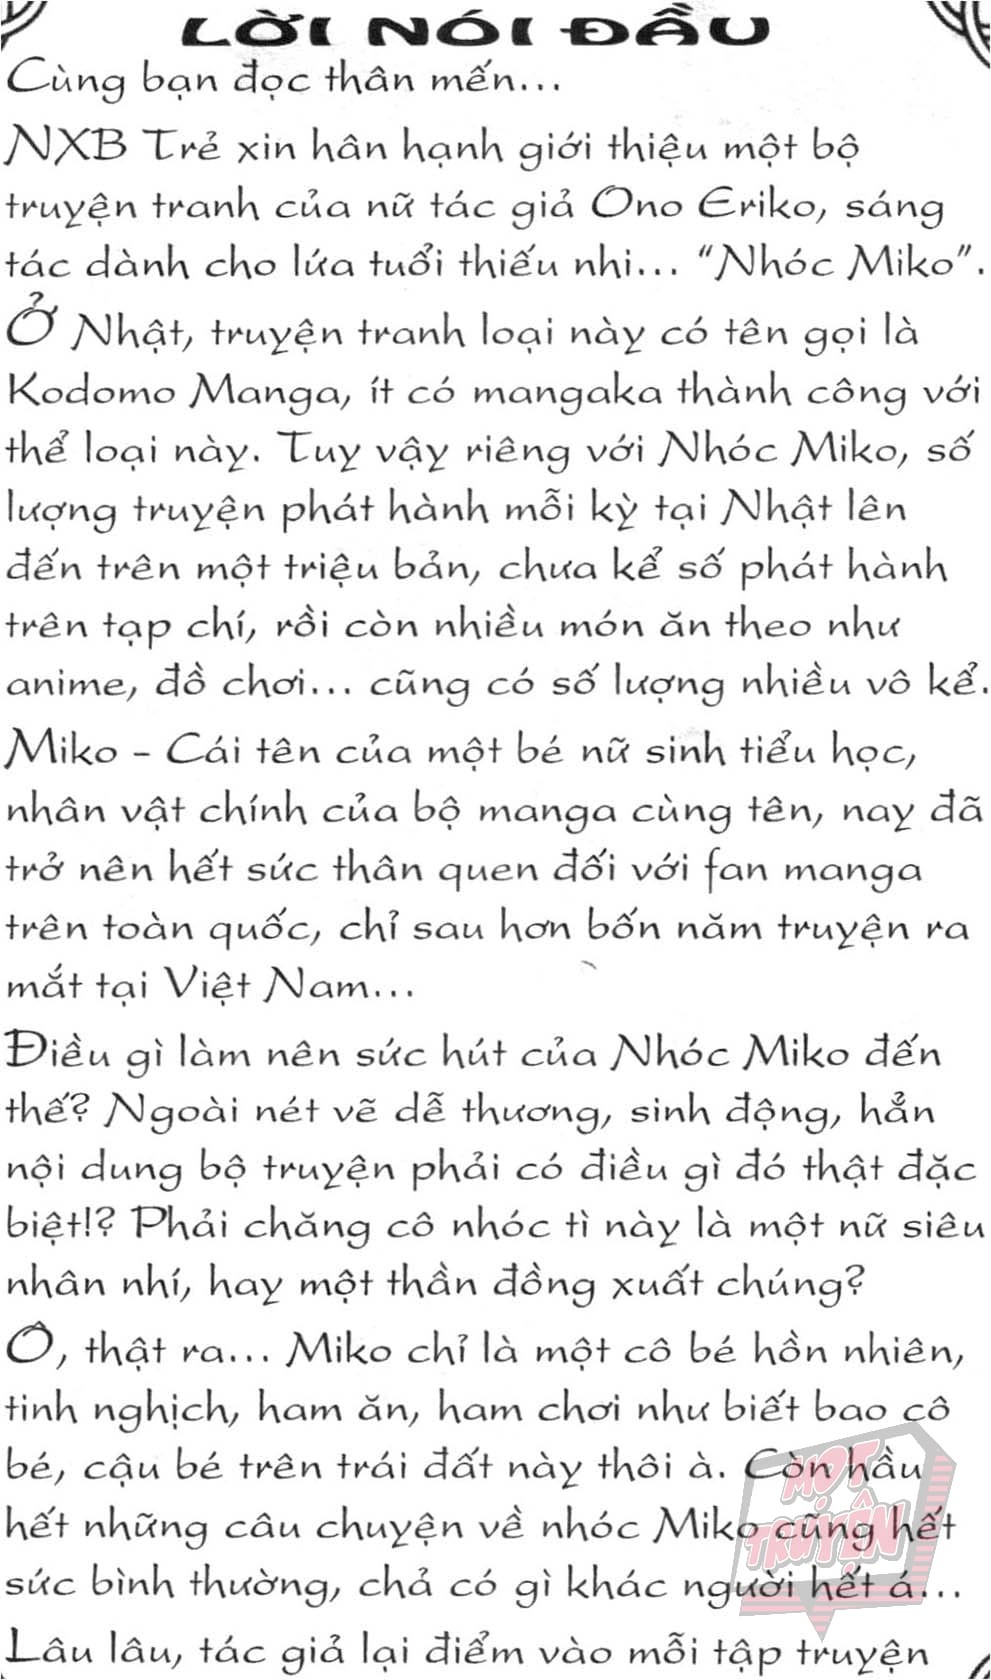 LỜI NÓI ĐẦU
Cùng bạn đọc thân mến...
NXB Trẻ xin hân hạnh giới thiệu một bộ
truyện tranh của nữ tác giả Ono Eriko, sáng
tác dành cho lứa tuổi thiếu nhi... "Nhóc Miko".
Ở Nhật, truyện tranh loại này có tên gọi là
Kodomo Manga, ít có mangaka thành công với
thể loại này. Tuy vậy riêng với Nhóc Miko, số
lượng truyện phát hành mỗi kỳ tại Nhật lên
đến trên một triệu bản, chưa kể số phát hành
trên tạp chí, rồi còn nhiều món ăn theo như
anime, đồ chơi... cũng có số lượng nhiều vô kể.
Miko - Cái tên của một bé nữ sinh tiểu học,
nhân vật chính của bộ manga cùng tên, nay đã
trở nên hết sức thân quen đối với fan manga
trên toàn quốc, chỉ sau hơn bốn năm truyện ra
mắt tại Việt Nam...
Điều gì làm nên sức hút của Nhóc Miko đến
thế? Ngoài nét vẽ dễ thương, sinh động, hẳn
nội dung bộ truyện phải có điều gì đó thật đặc
biệt!? Phải chăng cô nhóc tì này là một nữ siêu
nhân nhí, hay một thần đồng xuất chúng?
Ô, thật ra... Miko chỉ là một cô bé hồn nhiên,
tinh nghịch, ham ăn, ham chơi như biết bao cô
bé, cậu bé trên trái đất này thôi à. Còn hầu
hết những câu chuyện về nhóc Miko cũng hết
sức bình thường, chả có gì khác người hết á...
Lâu lâu, tác giả lại điểm vào mỗi tập truyện
MỌT
TRUYỆN